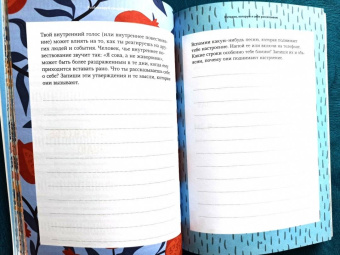 Твой внутренний голос (или внутреннее может мне-
ние) может влиять на то, как ты реагируешь на дру-
гих людей и события. Человек, чей внутренний го-
лос звучит так: «Я сова, а не жаворонок»,
может быть более раздражённым в те дни, когда ему
приходится вставать рано. Что ты рассказываешь себе
о себе? Запиши эти утверждения и те мысли, которые
они вызывают.
Вспомни какую-нибудь песню, которая поднимает
тебе настроение. Напой её или включи на телефоне.
Какие строки особенно тебе близки? Запиши их и по-
ясни, почему они поднимают настроение.